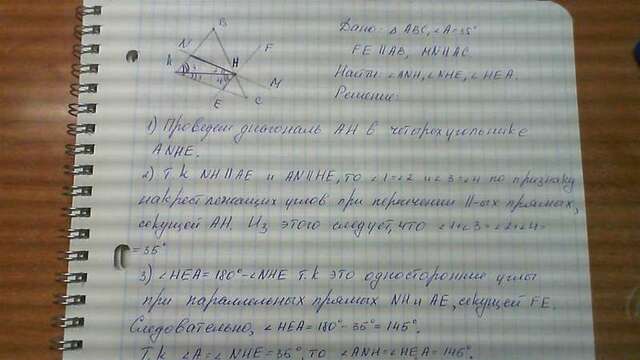 Дано: △ ABC, ∠A=35°
FE || AB, MN || AC.
Найти: ∠ANH, ∠NHE, ∠HEA.
Решение:
B
N
H
F
A
M
E
C
1) Проведем диагональ AH в четырехугольнике
ANHE.
2) Т.к NH || AE и AN || HE, то ∠1=∠2 и ∠3=∠4 по признаку
накрест лежащих углов при пересечении ||-ых прямых,
секущей AH. Из этого следует, что ∠1+∠3=∠2+∠4=
=35°
3) ∠HEA=180°-∠NHE т.к это односторонние углы
при параллельных прямых NH и AE, секущей FE.
Следовательно, ∠HEA=180°-35°=145°.
Т.к ∠A=∠NHE=35°, то ∠ANH=∠HEA=145°.